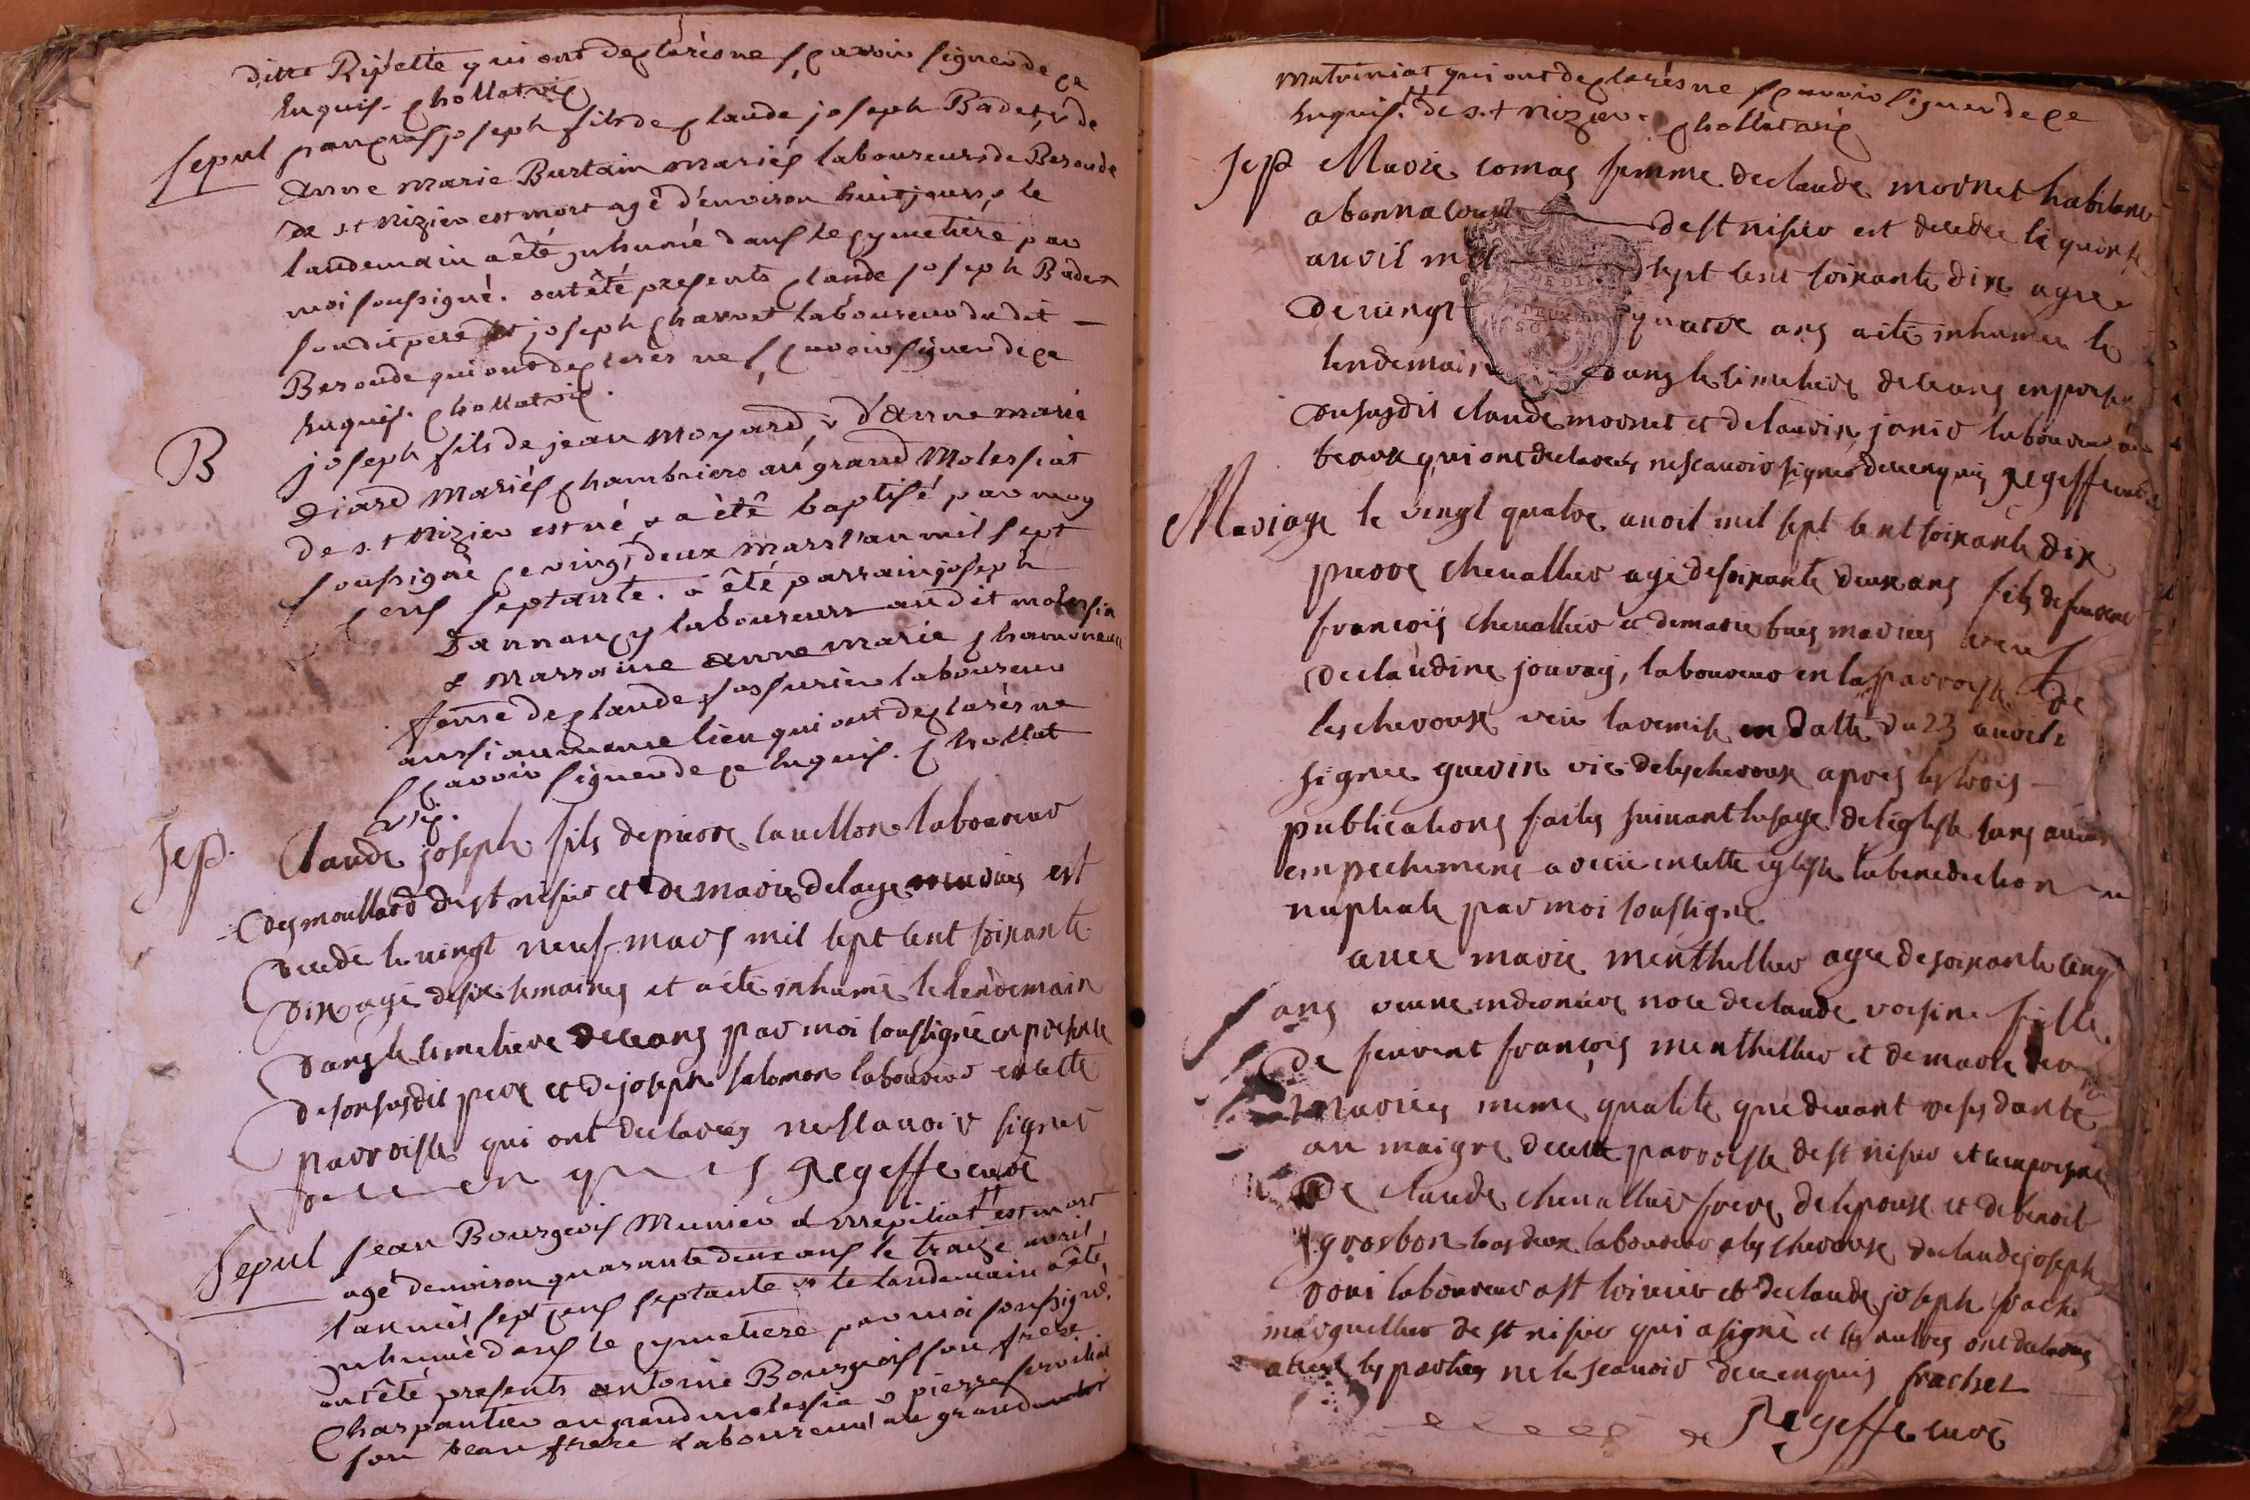 ditte Ripette qui ont declarés ne sçavoir signer de ce
enquis. chollat vic
sepul pancras joseph fils de claude joseph Badet, & de
anne marie Burtain mariés laboureurs de Besoude
de s.t Nizier est mort agé d'environ huit jours, & le
landemain a été inhumé dans le cymetière par
moi soussigné. ont été presents claude joseph Badet
son dit pere et joseph charvet laboureur du dit
Besoude qui ont declarés ne sçavoir signer de ce
enquis. chollat vic.
B joseph fils de jean moyard, & d'anne marie
diard mariés chambriere au grand Molessiat
de s.t Nizier est né & a été baptisé par moy
soussigné ce vingt deux mars l'an mil sept
cens septante. a été parrain joseph
dannancy laboureur au dit molessia
& marraine anne marie
femme de claude laboureur
aussi au meme lieu qui ont declarés ne
sçavoir signer de ce enquis. chollat
vic.
Sep. Claude joseph fils de pierre cavillon laboureur
des moullard de st nisier et de marie delaye mariés est
decede le vingt neuf mars mil sept cent soixante
dix agé de six semaines et a été inhumé le lendemain
dans le cimetiere de ceans par moi soussigné en presence
de son susdit pere et de joseph salomon laboureur en cette
parroisse qui ont declarés ne scavoir signer
de ce enquis Regeffe curé
Sepul jean Bourgeois Munier a Vrepiliat est mort
agé d'environ quarante deux ans le traize avril
l'an mil sept cens septante & le landemain a été
inhumé dans le cymetiere par moi soussigné.
ont été presents antoine Bourgeois son frere
Charpantier au grand molessia & pierre servilliat
son beau frere laboureur au grand
matriniat qui ont declarés ne sçavoir signer de ce
enquis. de s.t Nizier. chollat vic
Sep Marie comas femme de claude mornet habitant
a bonnacourt de st nisier est decedee le quinze
avril mil sept cent soixante dix agee
de vingt quatre ans a été inhumee le
lendemain dans le cimetiere de ceans en presence
du susdit claude mornet et de laurin janin laboureur
qui ont declarés ne scavoir signer de ce enquis Regeffe curé
Mariage le vingt quatre avril mil sept cent soixante dix
pierre chevallier agé de soixante deux ans fils de feu
françois chevallier et de marie bues mariés veuf
de claudine jouvray, laboureur en la parroisse de
lescheroux veu la remise en datte du 23 avril
signée guerin vic de lescheroux apres les trois
publications faites suivant lusage de leglise sans aucun
empechement a recu en cette eglise la benediction
nuptiale par moi soussigné
avec marie menthellier agée de soixante cinq
ans veuve en derniere noce de claude voisin fille
de feu françois menthellier et de marie
mariés meme qualité que devant residante
au maigre de cette parroisse de st nisier et en presence
de claude chevallier frere de lepoux et de benoit
grosbon tous deux laboureur a lescheroux de claude joseph
laboureur a st trivier et de claude joseph frachet
marguellier de st nisier qui a signé et les autres ont declarés
avec les parties ne le scavoir de ce enquis frachet
Regeffe curé